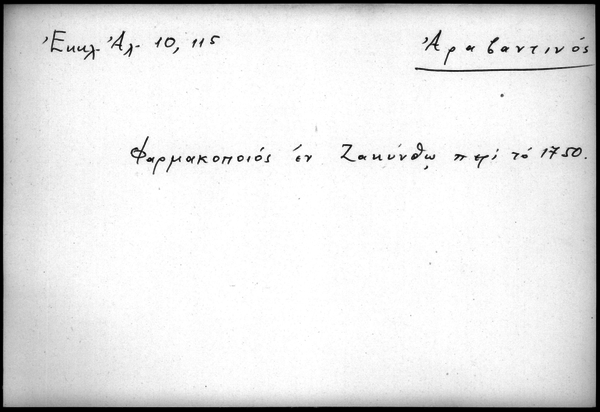 Ἐκκλ. Ἀλ. 10, 115
Ἀραβαντινός
Φαρμακοποιός ἐν Ζακύνθῳ περί τό 1750.